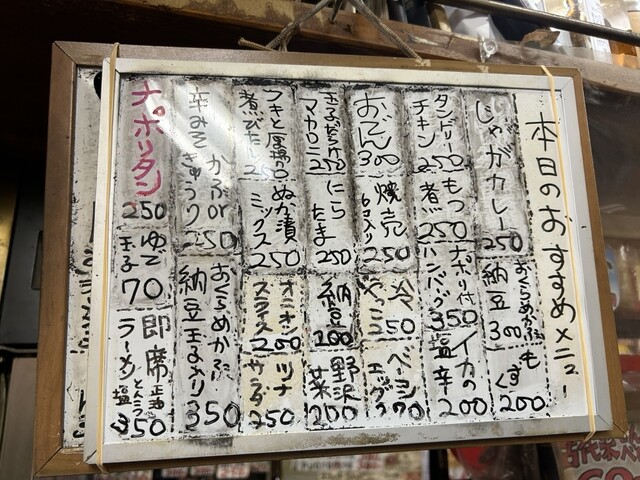 本日のおすすめメニュー
じゃがカレー 250
おくらめかぶ納豆 300
もずく 200
タンドリーチキン 250
もつ煮 250
ナポリ付ハンバーグ 350
イカの塩辛 200
おでん 300
焼売 6コ入り 250
冷やっこ 250
ベーコンエッグ 270
玉子だらけマカロニ 250
にらたま 250
納豆 200
野沢菜 200
フキと厚揚の煮びたし 250
ぬか漬ミックス 250
オニオンスライス 200
ツナサラダ 250
辛みそきゅうり かぶor 250
おくらめかぶ納豆玉子入り 350
ナポリタン 250
ゆで玉子 70
即席ラーメン 正油 とんこつ 塩 350